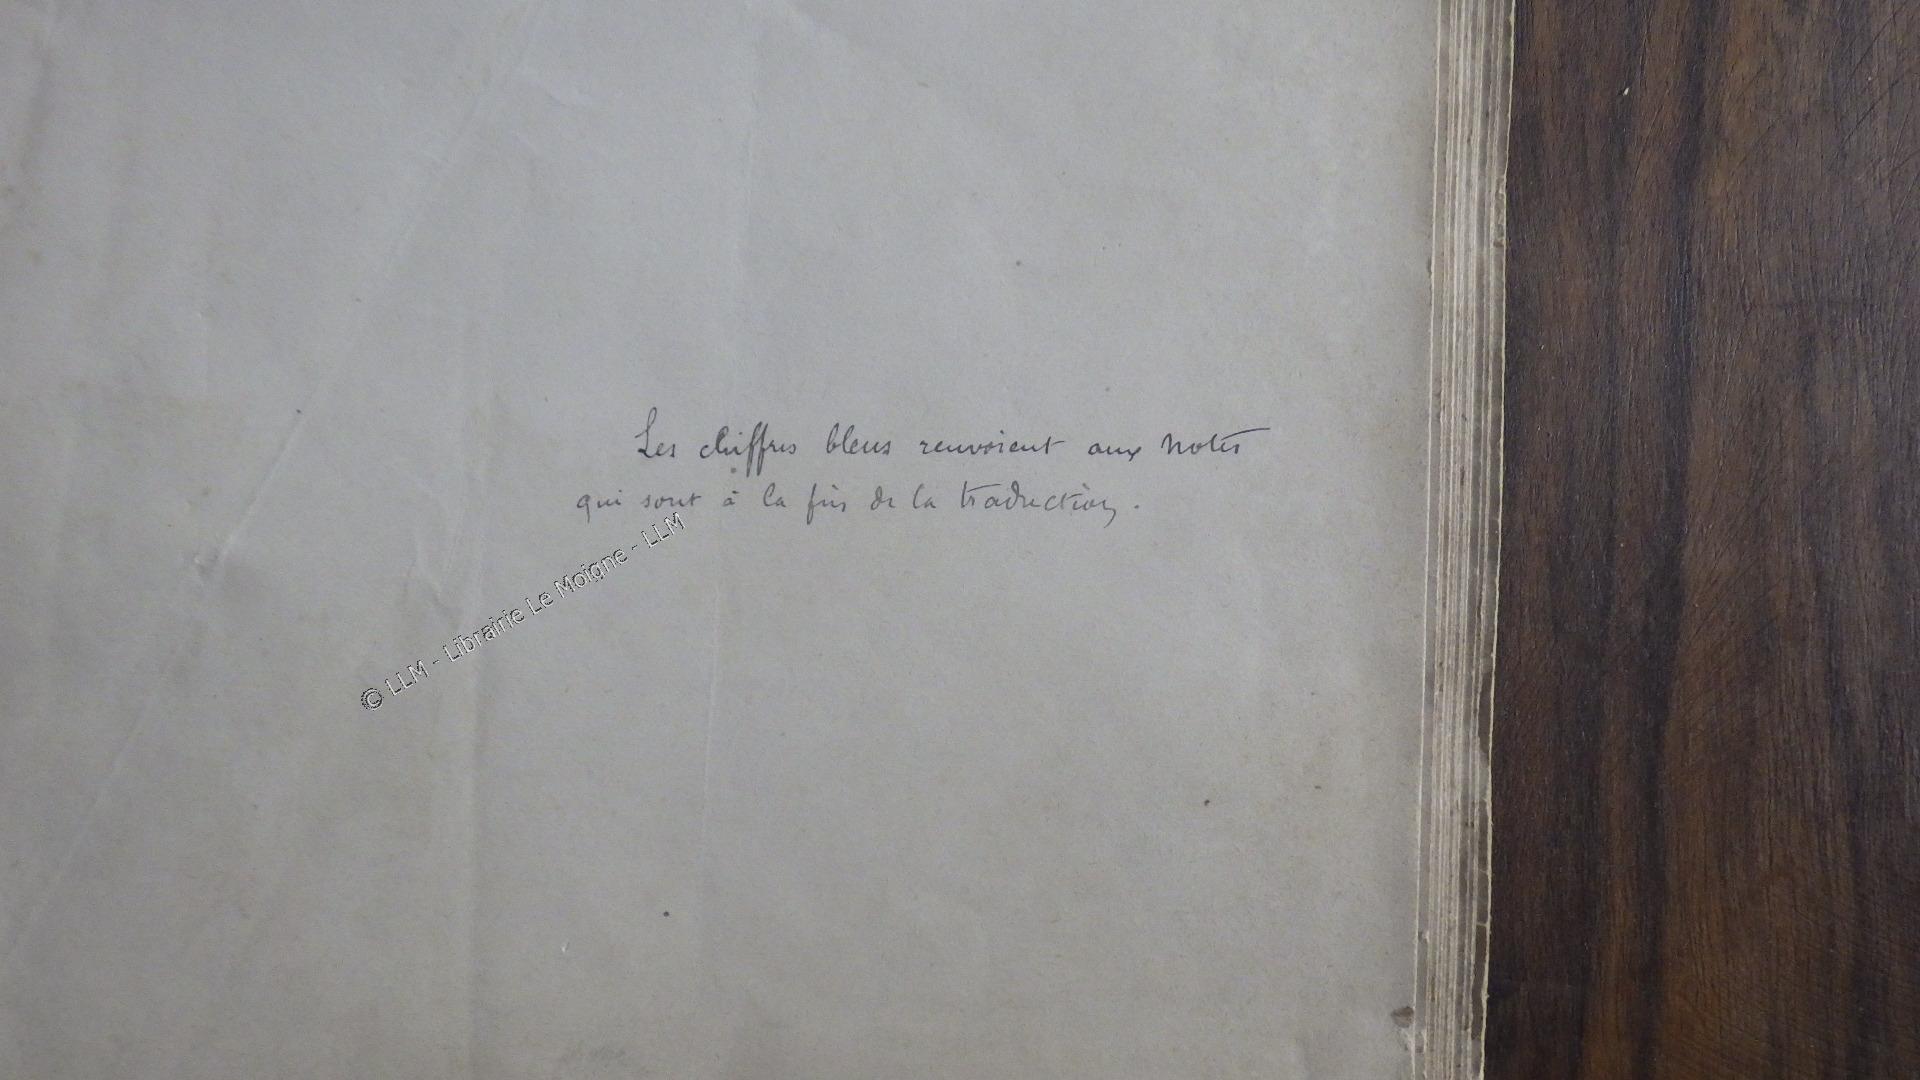 Les chiffres bleus renvoient aux notes
qui sont à la fin de la traduction.
© LLM - Librairie Le Moigne - LLM